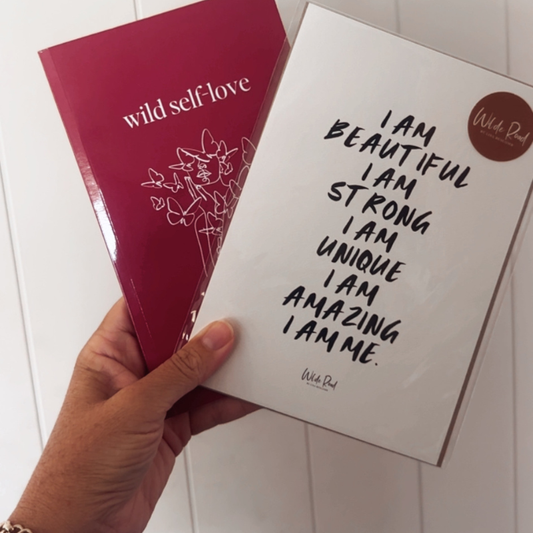 wild self-love
I AM
BEAUTIFUL
I AM
STRONG
I AM
UNIQUE
I AM
AMAZING
I AM ME.
Wilde Road
Wilde Road